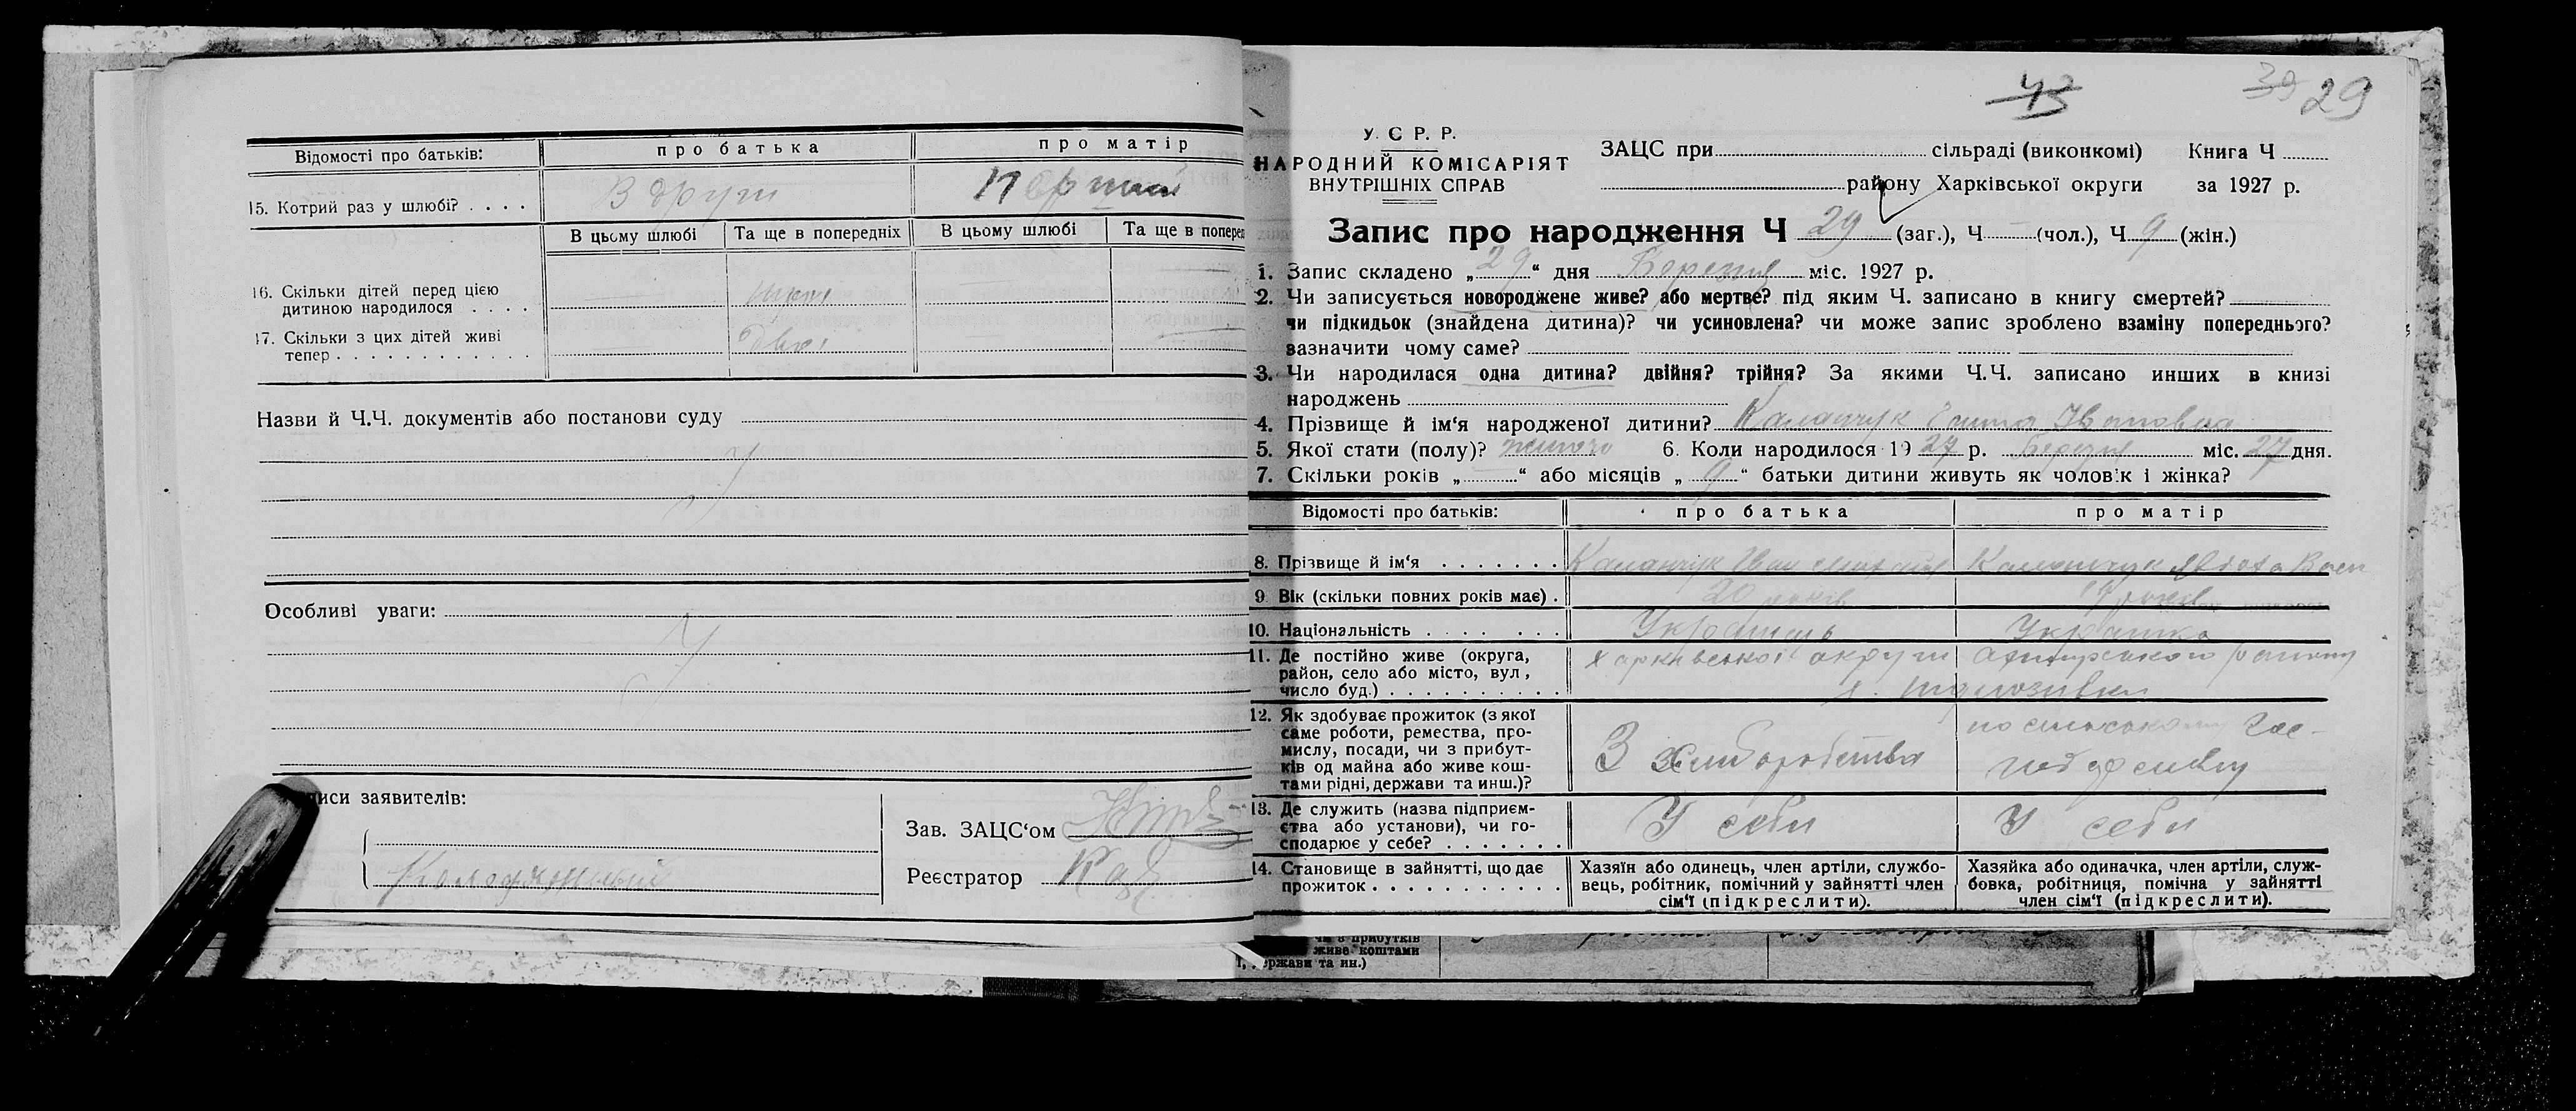 Відомості про батьків: про батька про матір
15. Котрий раз у шлюбі? . . . . Вдруги Перший
В цьому шлюбі Та ще в попередніх В цьому шлюбі Та ще в поперед
16. Скільки дітей перед цією
дитиною народилося . . . .
17. Скільки з цих дітей живі
тепер . . . . . . . . . . . . . двоє
Назви й Ч.Ч. документів або постанови суду
Особливі уваги:
писи заявителів:
Зав. ЗАЦС'ом
Реєстратор
43
39 29
У. С Р. Р.
НАРОДНИЙ КОМІСАРІЯТ
ВНУТРІШНІХ СПРАВ
ЗАЦС при сільраді (виконкомі) Книга Ч
району Харківської округи за 1927 р.
Запис про народження Ч 29 (заг.), Ч (чол.), Ч 9 (жін.)
1. Запис складено „29“ дня Березня міс. 1927 р.
2. Чи записується новороджене живе? або мертве? під яким Ч. записано в книгу смертей?
чи підкидьок (знайдена дитина)? чи усиновлена? чи може запис зроблено взаміну попереднього?
зазначити чому саме?
3. Чи народилася одна дитина? двійня? трійня? За якими Ч.Ч. записано инших в книзі
народжень
4. Прізвище й ім'я народженої дитини? Каланчук Ганна Івановна
5. Якої стати (полу)? жіночо 6. Коли народилося 1927 р. Березня міс. 27 дня.
7. Скільки років „ “ або місяців „9“ батьки дитини живуть як чоловік і жінка?
Відомості про батьків: про батька про матір
8. Прізвище й ім'я . . . . . . . Каланчук Іван Каланчук
9 Вік (скільки повних років має) . 20 років 19 років
10. Національність . . . . . . . Українець Українка
11. Де постійно живе (округа, Харківської округи
район, село або місто, вул,
число буд.) . . . . . . . . . .
12. Як здобуває прожиток (з якої
саме роботи, ремества, про-
мислу, посади, чи з прибут-
ків од майна або живе кош-
тами рідні, держави та инш.)? З хліборобства
13. Де служить (назва підприєм-
ства або установи), чи го-
сподарює у себе? . . . . . . . У себи У себи
14. Становище в зайнятті, що дає
прожиток . . . . . . . . . . .
Хазяїн або одинець, член артіли, службо-
вець, робітник, помічний у зайнятті член
сім'ї (підкреслити).
Хазяйка або одиначка, член артіли, служ-
бовка, робітниця, помічна у зайнятті
член сім'ї (підкреслити).
чи з прибутків
живе коштами
ержави та ин.)